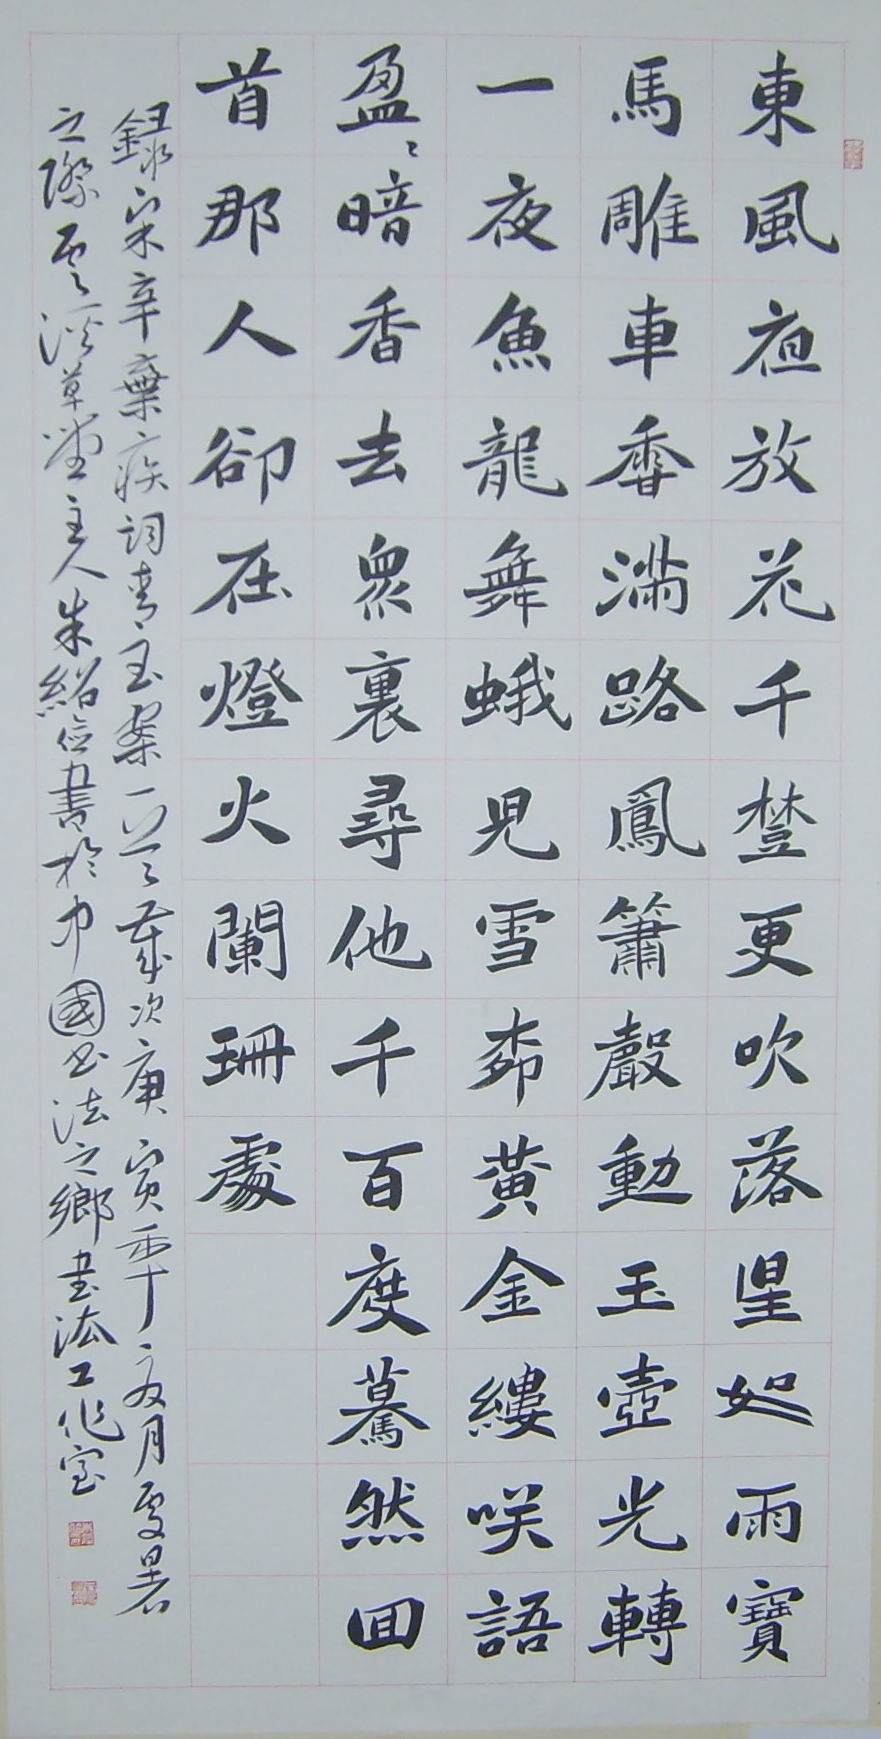 東風夜放花千𣗳更吹落星如雨寶
馬雕車香滿路鳳簫聲動玉壺光轉
一夜魚龍舞蛾兒雪柳黃金縷咲語
盈〻暗香去眾裏尋他千百度驀然回
首那人卻在燈火闌珊處
錄宋辛棄疾詞青玉案一首歲次庚寅年夏月處暑
之際雲溪草堂主人朱紹俭書於中國书法之鄉書法工作室